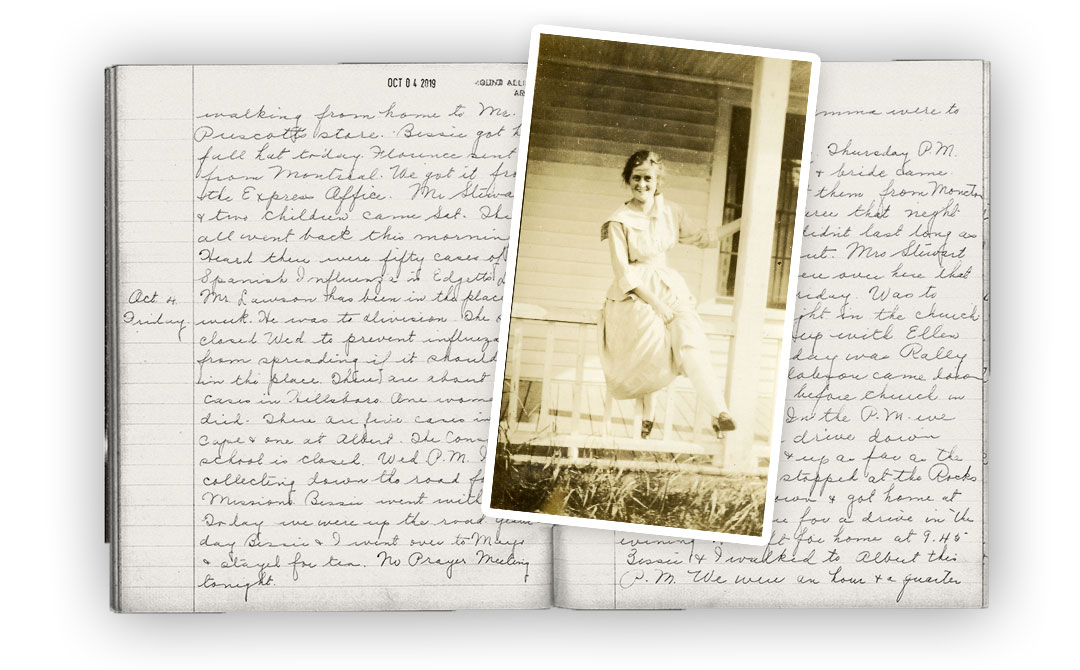 OCT 04 2019
walking from home to Mr.
Prescott's store. Bessie got h
fall hat today. Florence sent
from Montreal. We got it fro
the Express Office. Mr Stewa
& two children came Sat. The
all went back this mornin
Heard there were fifty cases of
Spanish Influenza in Edgetts
Oct 4.
Mr. Lawson has been in the place
Friday
week. He was to division. The
closed Wed to prevent influenza
from spreading if it should
in the place. There are about
cases in Hillsboro. One woma
died. There are five cases in
Cape & one at Albert. The Cons
school is closed. Wed P.M. I
collecting down the road fo
Missions Bessie went with
Today we were up the road
day Bessie & I went over to
& stayed for tea. No Prayer Meeting
tonight.
mma were to
Thursday P.M.
& bride came
them from Moncton
that night
didnt last long as
ut. Mrs Stewart
over here that
day. Was to
ght in the church
up with Ellen
day was Rally
came down
before church in
In the P.M. we
drive down
& up as far as the
stopped at the Rocks
own & got home at
for a drive in the
evening
t for home at 9.45
Bessie & I walked to Albert this
P.M. We were an hour & a quarter